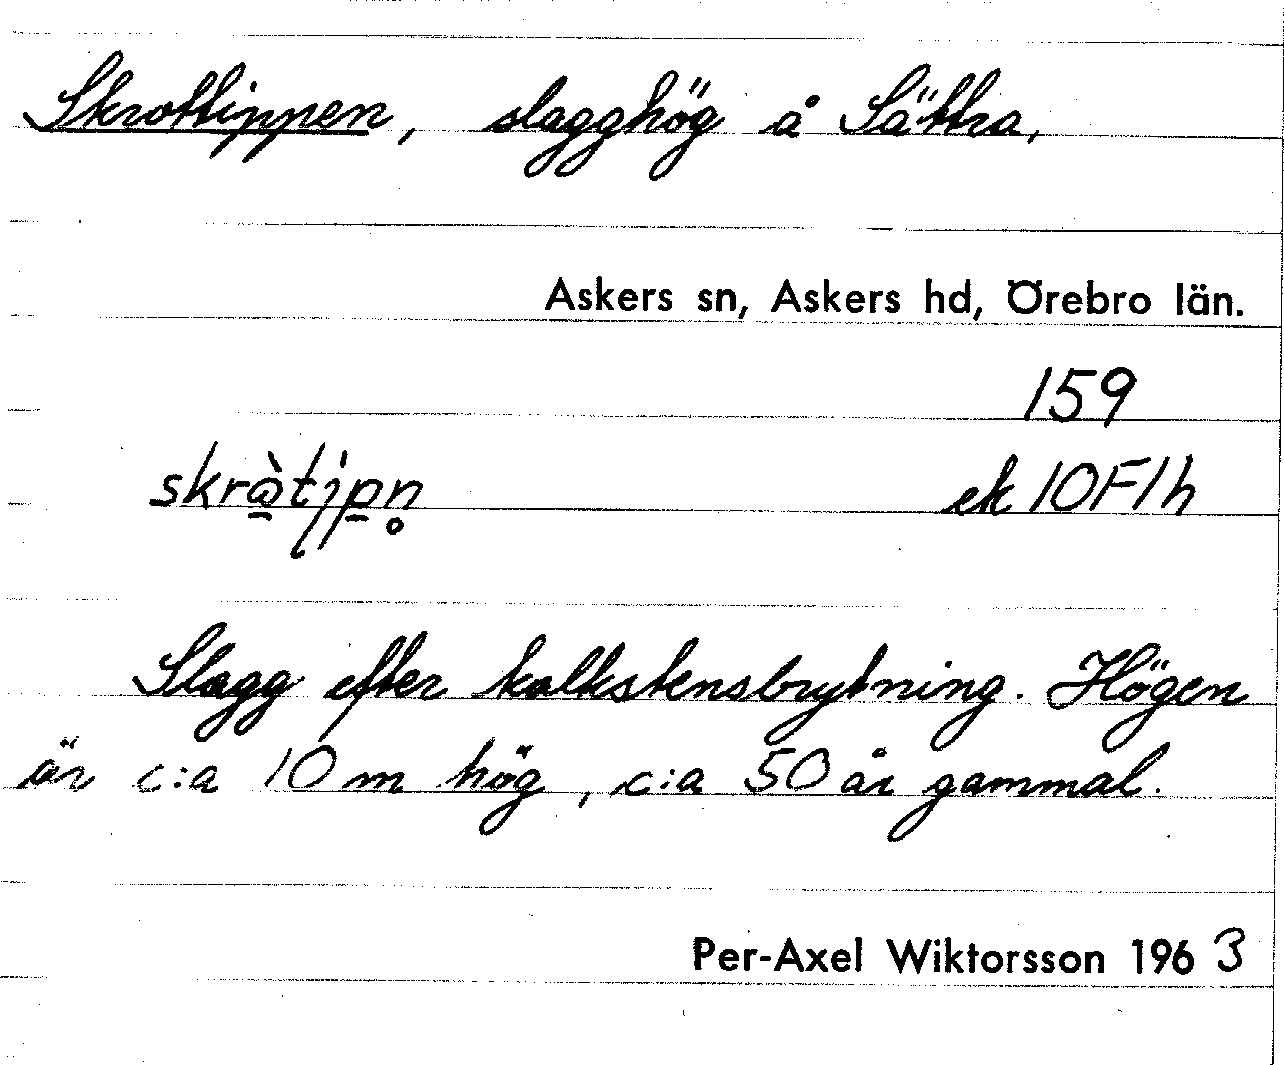 Skrottippen, slagghög å Sättra,
Askers sn, Askers hd, Örebro län.
159
ek 10F1h
Slagg efter kalkstensbrytning. Högen
är c:a 10 m hög, c:a 50 år gammal.
Per-Axel Wiktorsson 1963